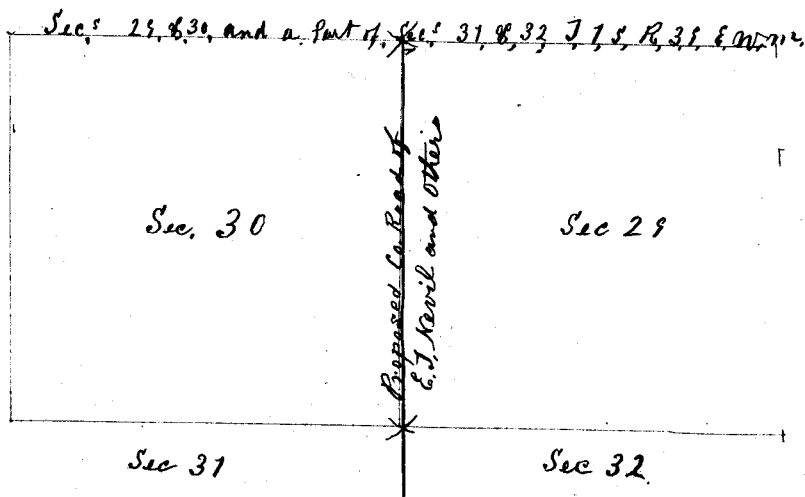 Sec.s 29, & 30, and a Part of Sec.s 31, & 32, T, 1, S, R, 39, E, W, M.
Sec. 30
Proposed Co. Road of
E. T. Nevil and Others
Sec 29
Sec 31
Sec 32